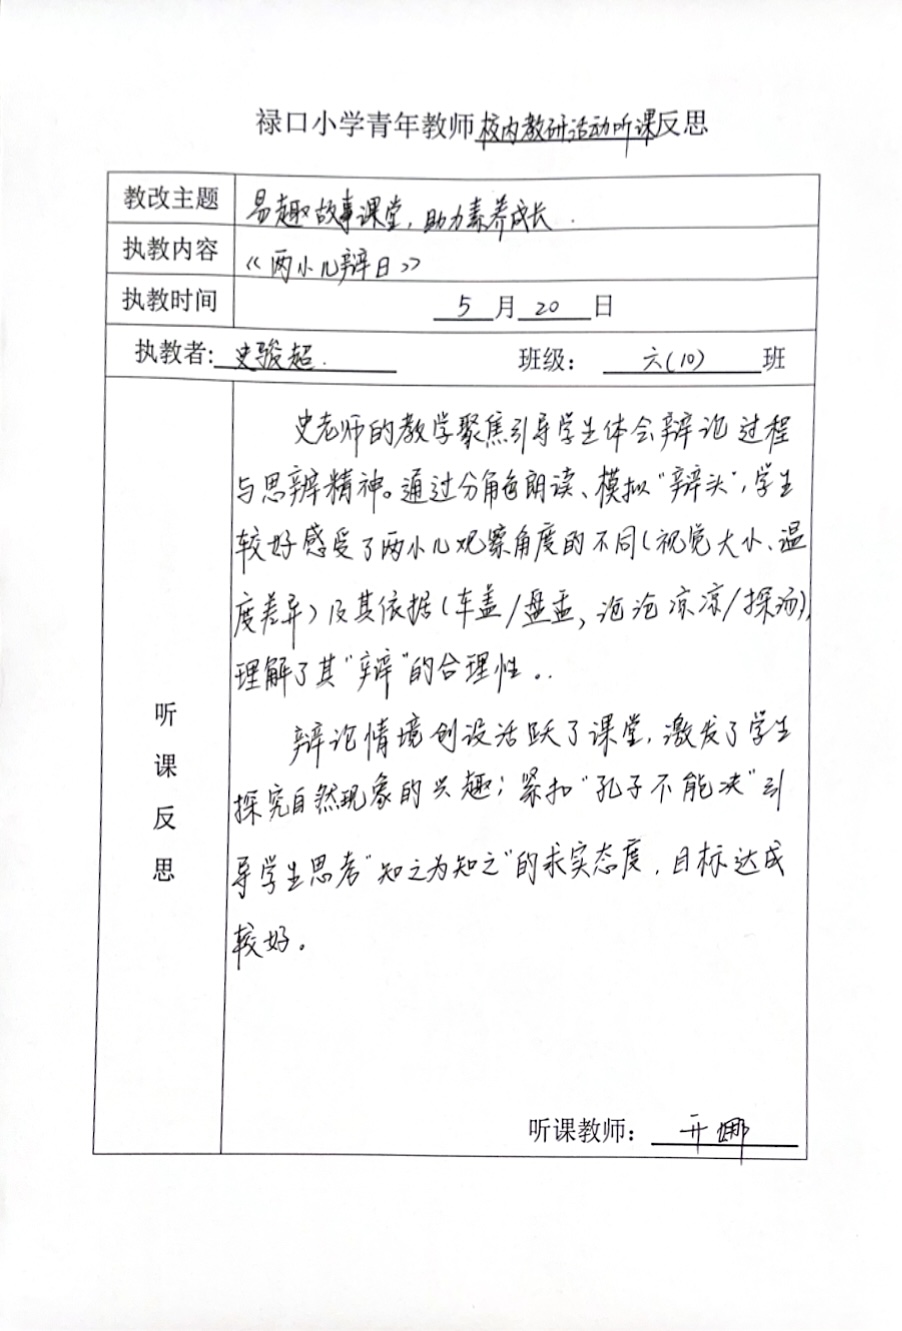 禄口小学青年教师校内教研活动听课反思
教改主题 易趣故事课堂，助力素养成长.
执教内容 《两小儿辩日》
执教时间 5月20日
执教者: 史骏超. 班级: 六(10)班
听课反思
史老师的教学聚焦引导学生体会辩论过程
与思辨精神。通过分角色朗读、模拟“辩斗”,学生
较好感受了两小儿观察角度的不同(视觉大小、温
度差异)及其依据(车盖/盘盂,沧沧凉凉/探汤),
理解了其“辩”的合理性。
辩论情境创设活跃了课堂,激发了学生
探究自然现象的兴趣;紧扣“孔子不能决”引
导学生思考“知之为知之”的求实态度,目标达成
较好。
听课教师: 亓娜